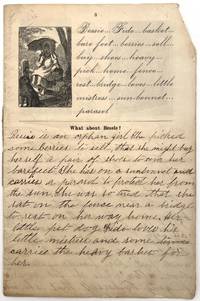 3
Bessie... Fido... basket
bare feet... berries... sell...
buy... shoes... heavy...
pick... home... fence...
rest... bridge... loves... little
mistress... sun-bonnet...
parasol
What about Bessie?
Bessie is an orphan girl. She picked
some berries to sell, that she might buy
herself a pair of shoes to cover her
bare feet. She has on a sunbonnet and
carries a parasol to protect her from
the sun. She was so tired that she
sat on the fence near a bridge
to rest on her way home. Her
little pet dog Fido loves his
little mistress and some
carries the heavy basket for
her.